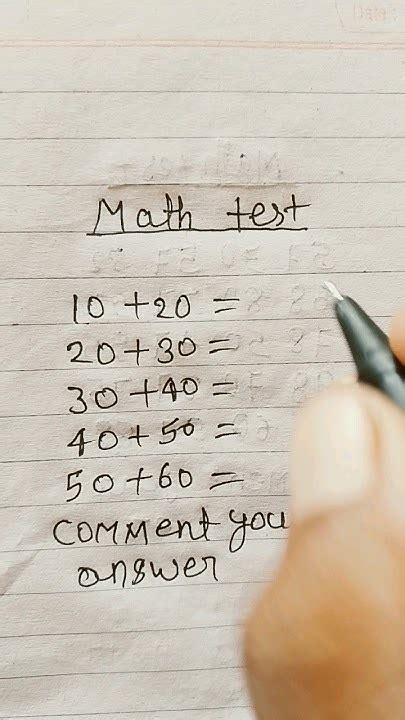 Date:
Math test
10 + 20 =
20 + 30 =
30 + 40 =
40 + 50 =
50 + 60 =
comment you
answer